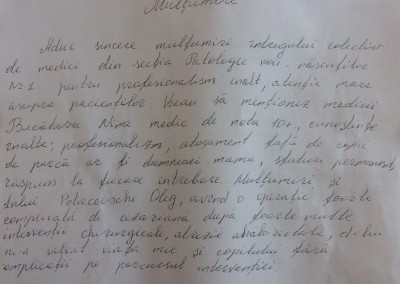 Mulțumire
Aduc sincere mulțumiri întregului colectiv
de medici din secția Patologie noi-născuților
Nr 1 pentru profesionalism înalt, atenție mare
asupra pacienților. Vreau să menționez medicii
Bucătaru Nina medic de nota 10+, cunoștințe
înalte; profesionalizm, atașament față de copii
de parcă ar fi dumneaei mama, sfaturi permanent,
răspuns la fiecare întrebare. Mulțumiri și
D-lui Polaceuschi Oleg, avînd o operație foarte
complicată de cezariană după foarte multe
intervenții chirurgicale, atrezie
ni-a salvat viața mie și copilului fără
complicații pe parcursul intervenției.